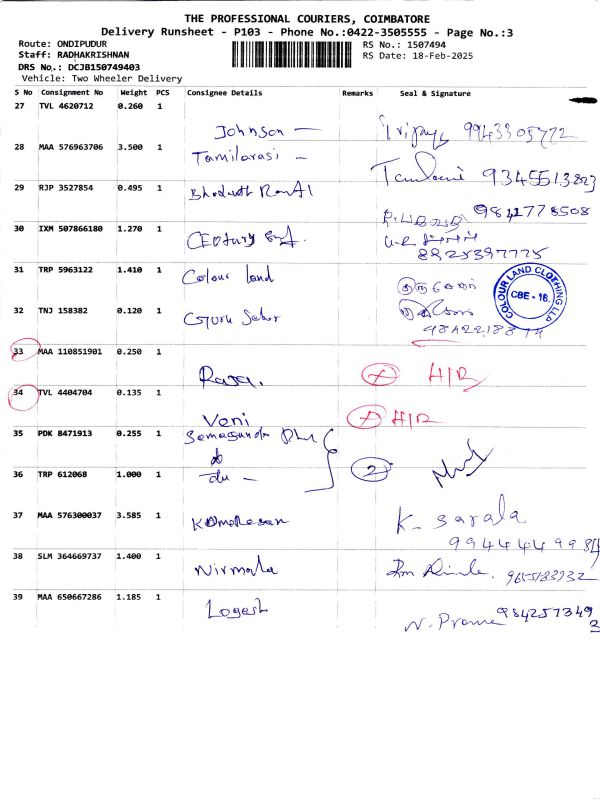 THE PROFESSIONAL COURIERS, COIMBATORE
Delivery Runsheet - P103 - Phone No.:0422-3505555 - Page No.:3
Route: ONDIPUDUR
RS No.: 1507494
Staff: RADHAKRISHNAN
RS Date: 18-Feb-2025
DRS No.: DCJB150749403
Vehicle: Two Wheeler Delivery
S No Consignment No Weight PCS Consignee Details Remarks Seal & Signature
27 TVL 4620712 0.260 1
Johnson — 9943305722
28 MAA 576963706 3.500 1
Tamilarasi — 9345513823
29 RJP 3527854 0.495 1
9842778508
30 IXM 507866180 1.270 1
Century
8825397775
31 TRP 5963122 1.410 1
Colour land
COLOUR LAND CLOTHING LLP
CBE - 16.
32 TNJ 158382 0.120 1
Guru
33 MAA 110851901 0.250 1
Raja. H/R
34 TVL 4404704 0.135 1
Veni H/R
35 PDK 8471913 0.255 1
36 TRP 612068 1.000 1
du — 2
37 MAA 576300037 3.585 1
Kumaresan K. Sarala
38 SLM 364669737 1.400 1
Nirmala
39 MAA 650667286 1.185 1
Logesh
N. Prema 9842573493